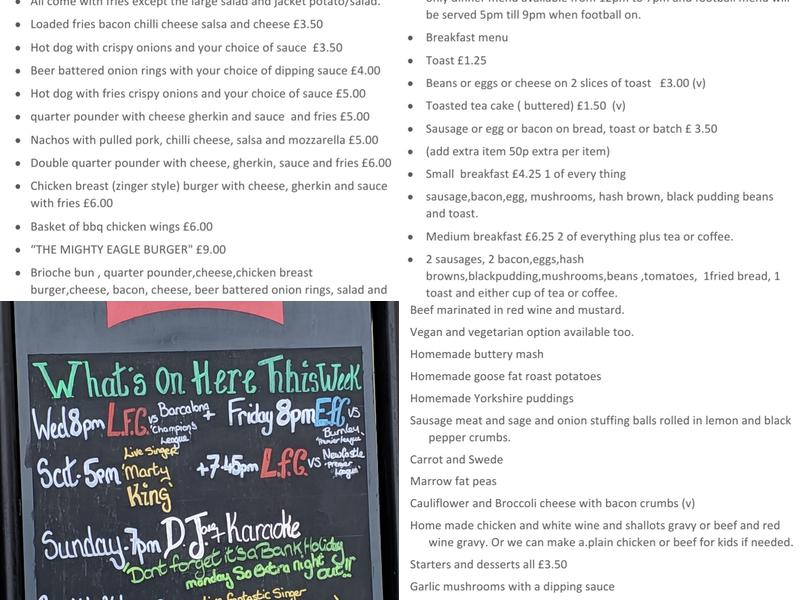 All come with fries except the large salad and jacket potato/salad.
Loaded fries bacon chilli cheese salsa and cheese £3.50
Hot dog with crispy onions and your choice of sauce £3.50
Beer battered onion rings with your choice of dipping sauce £4.00
Hot dog with fries crispy onions and your choice of sauce £5.00
quarter pounder with cheese gherkin and sauce and fries £5.00
Nachos with pulled pork, chilli cheese, salsa and mozzarella £5.00
Double quarter pounder with cheese, gherkin, sauce and fries £6.00
Chicken breast (zinger style) burger with cheese, gherkin and sauce
with fries £6.00
Basket of bbq chicken wings £6.00
“THE MIGHTY EAGLE BURGER" £9.00
Brioche bun , quarter pounder,cheese,chicken breast
burger,cheese, bacon, cheese, beer battered onion rings, salad and
only dinner menu available from 12pm to 7pm and football menu will
be served 5pm till 9pm when football on.
Breakfast menu
Toast £1.25
Beans or eggs or cheese on 2 slices of toast £3.00 (v)
Toasted tea cake ( buttered) £1.50 (v)
Sausage or egg or bacon on bread, toast or batch £ 3.50
(add extra item 50p extra per item)
Small breakfast £4.25 1 of every thing
sausage,bacon,egg, mushrooms, hash brown, black pudding beans
and toast.
Medium breakfast £6.25 2 of everything plus tea or coffee.
2 sausages, 2 bacon,eggs,hash
browns,blackpudding,mushrooms,beans ,tomatoes, 1fried bread, 1
toast and either cup of tea or coffee.
What's On Here ThhisWeek
Wed8pm L.F.C vs Barcalona Champions League + Friday 8pm Efc vs Burnley 'Premier league'
Sat-5pm Live Singer 'Marty King' +7-45pm L.f.C vs Newcastle 'Premier League'
Sunday-7pm DJ + Karaoke
'Dont forget it's a Bank Holiday
monday So extra night out!!'
fantastic Singer
Beef marinated in red wine and mustard.
Vegan and vegetarian option available too.
Homemade buttery mash
Homemade goose fat roast potatoes
Homemade Yorkshire puddings
Sausage meat and sage and onion stuffing balls rolled in lemon and black
pepper crumbs.
Carrot and Swede
Marrow fat peas
Cauliflower and Broccoli cheese with bacon crumbs (v)
Home made chicken and white wine and shallots gravy or beef and red
wine gravy. Or we can make a.plain chicken or beef for kids if needed.
Starters and desserts all £3.50
Garlic mushrooms with a dipping sauce